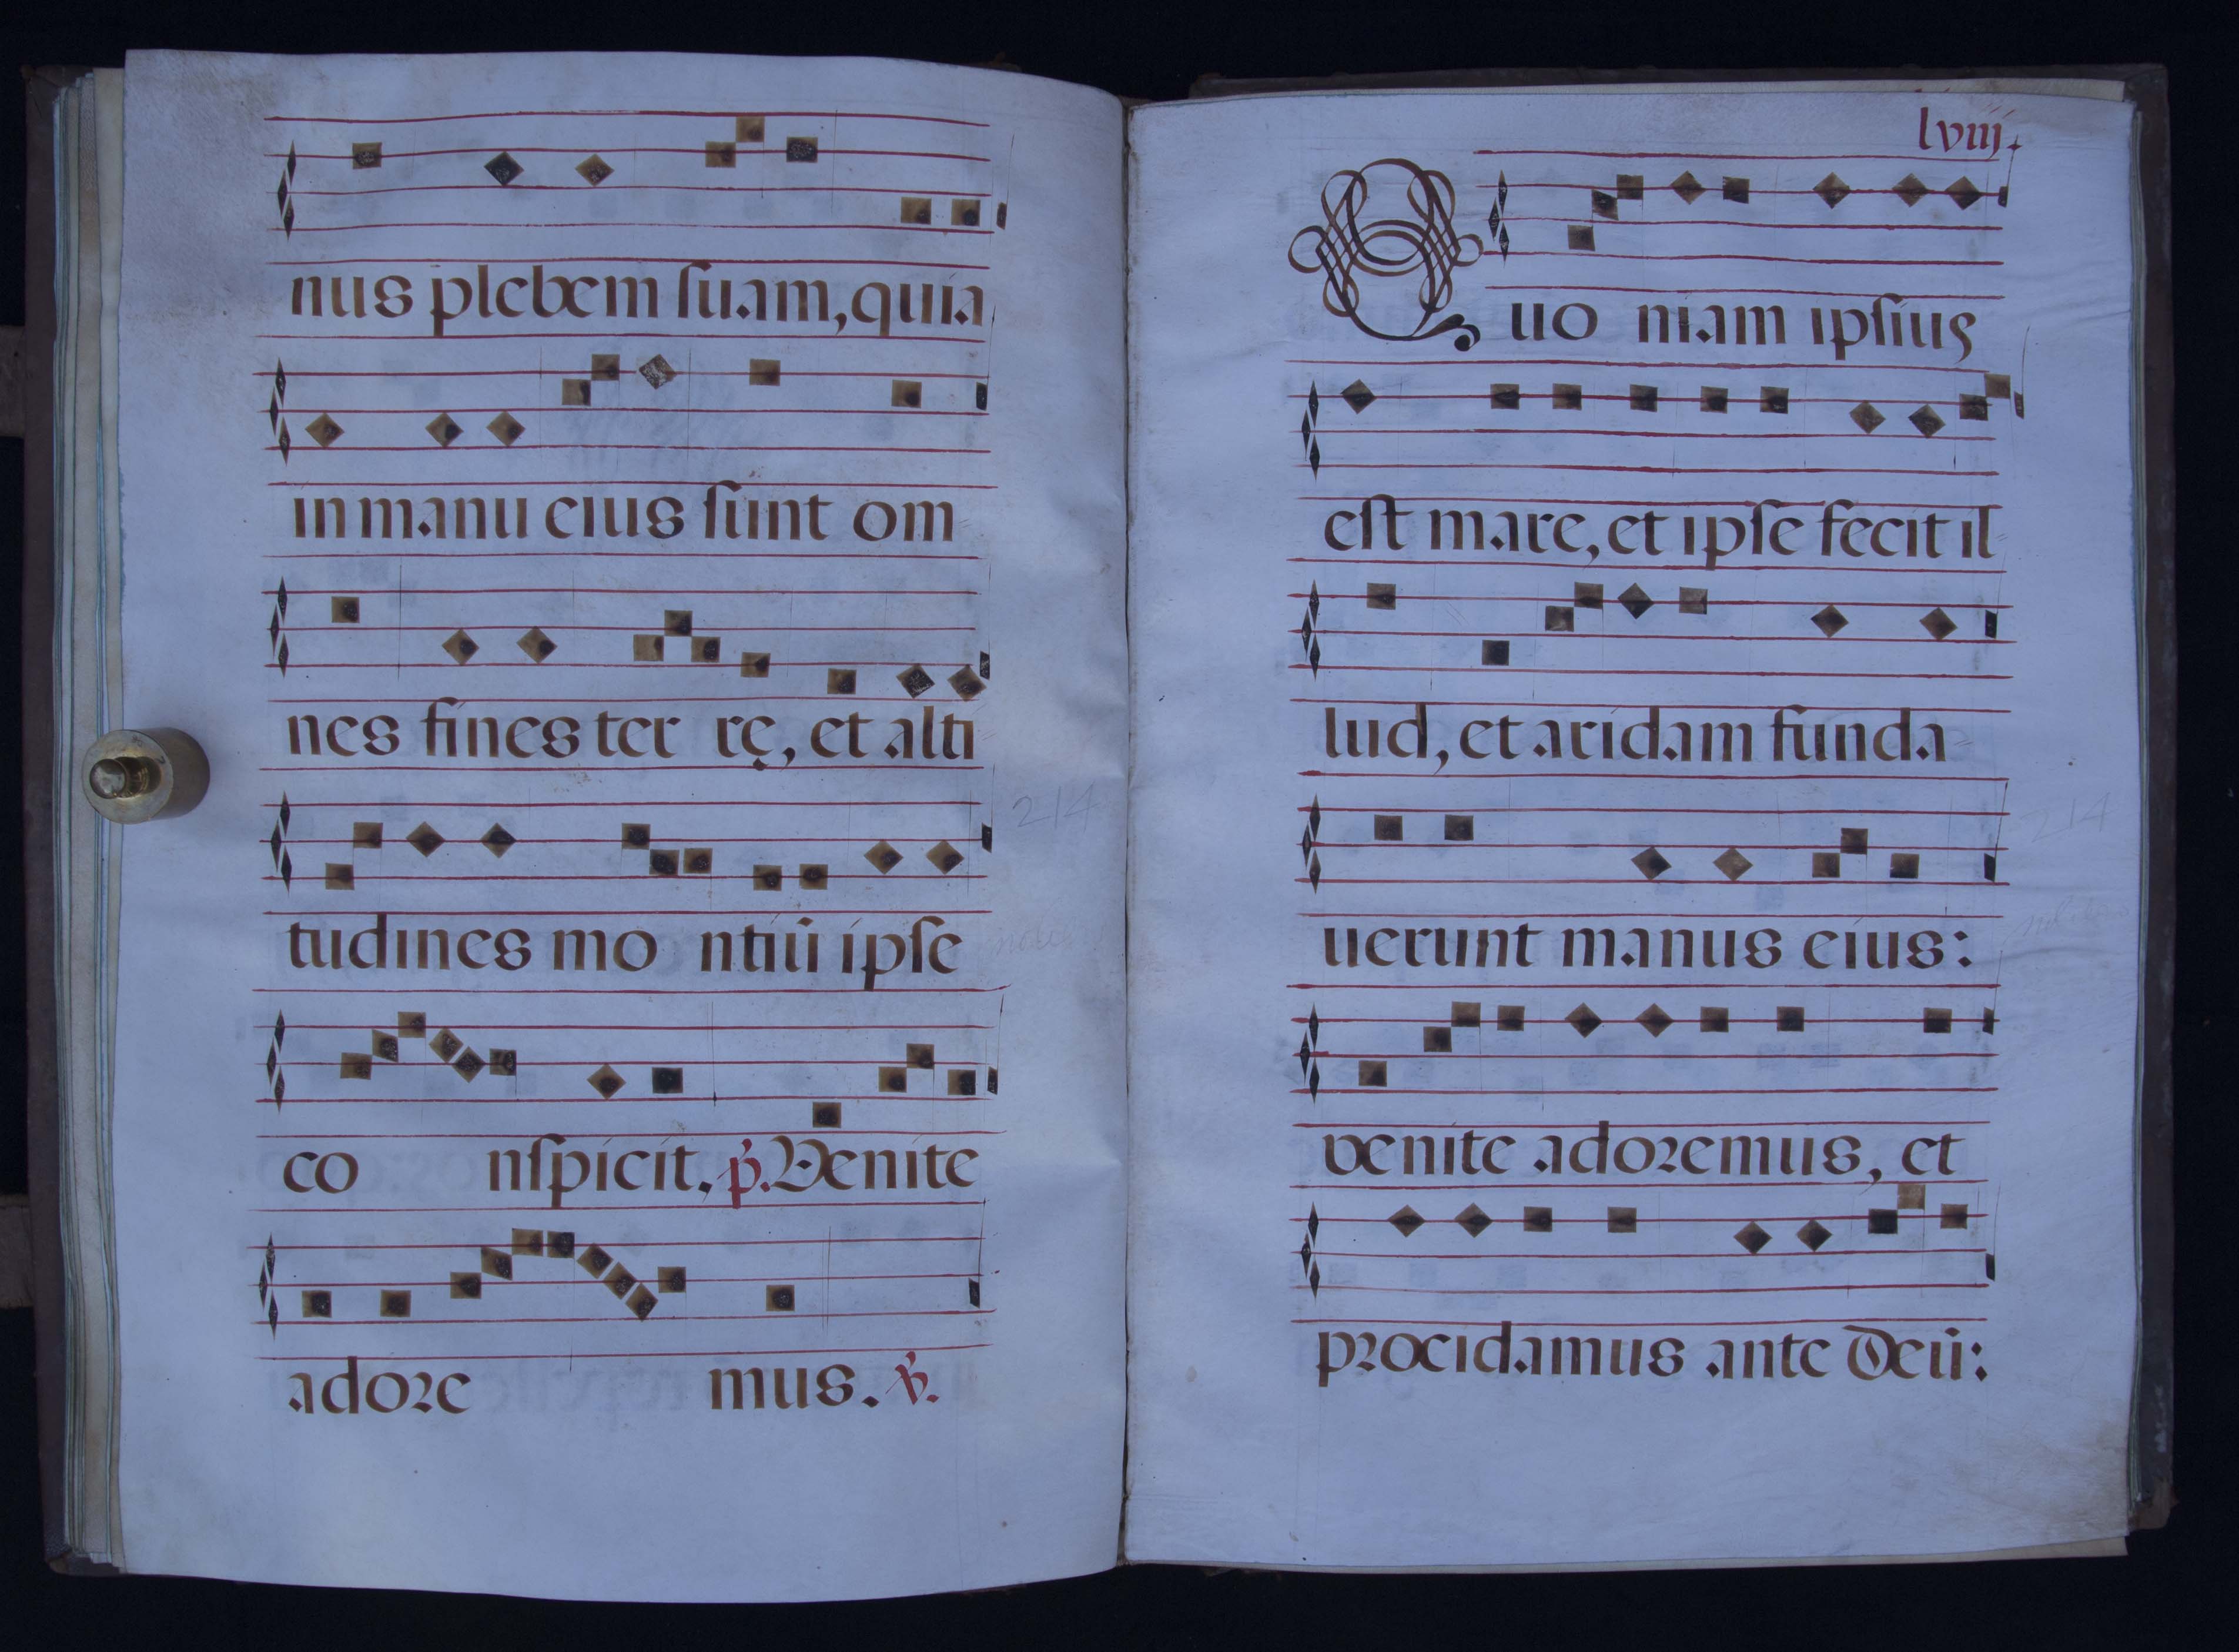 nus plebem ſuam, quia
in manu eius ſunt om
nes fines ter rę, et alti
tudines mo ntiū ipſe
co nſpicit. p̄. Venite
adore mus. ꝟ.
214
lviij.
Quo niam ipſius
eſt mare, et ipſe fecit il
lud, et aridam funda
uerunt manus eius:
venite adoremus, et
procidamus ante Deū:
214